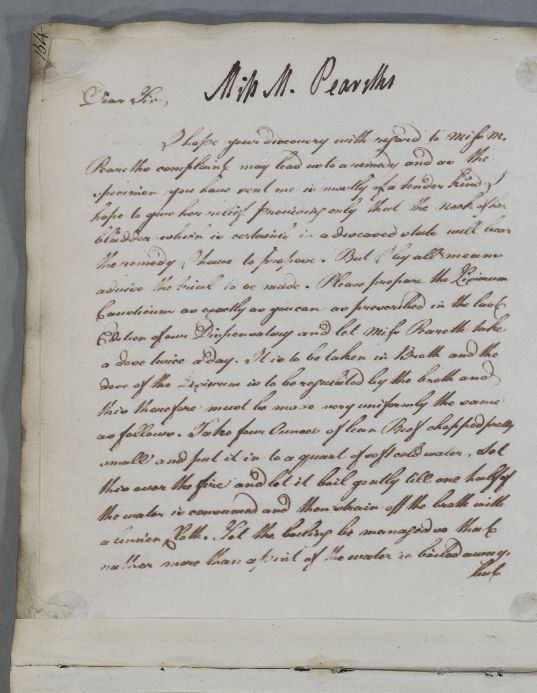 134
Miss M. Peareths
Dear Sir,
I hope your discovery with regard to Miss M.
Peareths complaint may lead us to a remedy and as the
specimen you have sent me is mostly of a tender kind I
hope to give her relief, Provision only that the neck of her
bladder which is certainly in a diseased state will bear
the remedy I have to propose. But I by all means
advise the trial to be made. Please prepare the Lixivium
Causticum as exactly as you can as prescribed in the last
Edition of our Dispensatory and let Miss Peareth take
a dose twice a day. It is to be taken in Broth and the
dose of the Lixivium is to be regulated by the broth and
this therefore must be made very uniformly the same
as follows. Take four Ounces of lean Beef chopped pretty
small and put it in to a quart of soft cold water. Set
this over the fire and let it boil gently till one half of
the water is consumed and then strain off the broth with
a linnen Cloth. Let the boiling be managed so that
rather more than a pint of the water is boiled away.
but